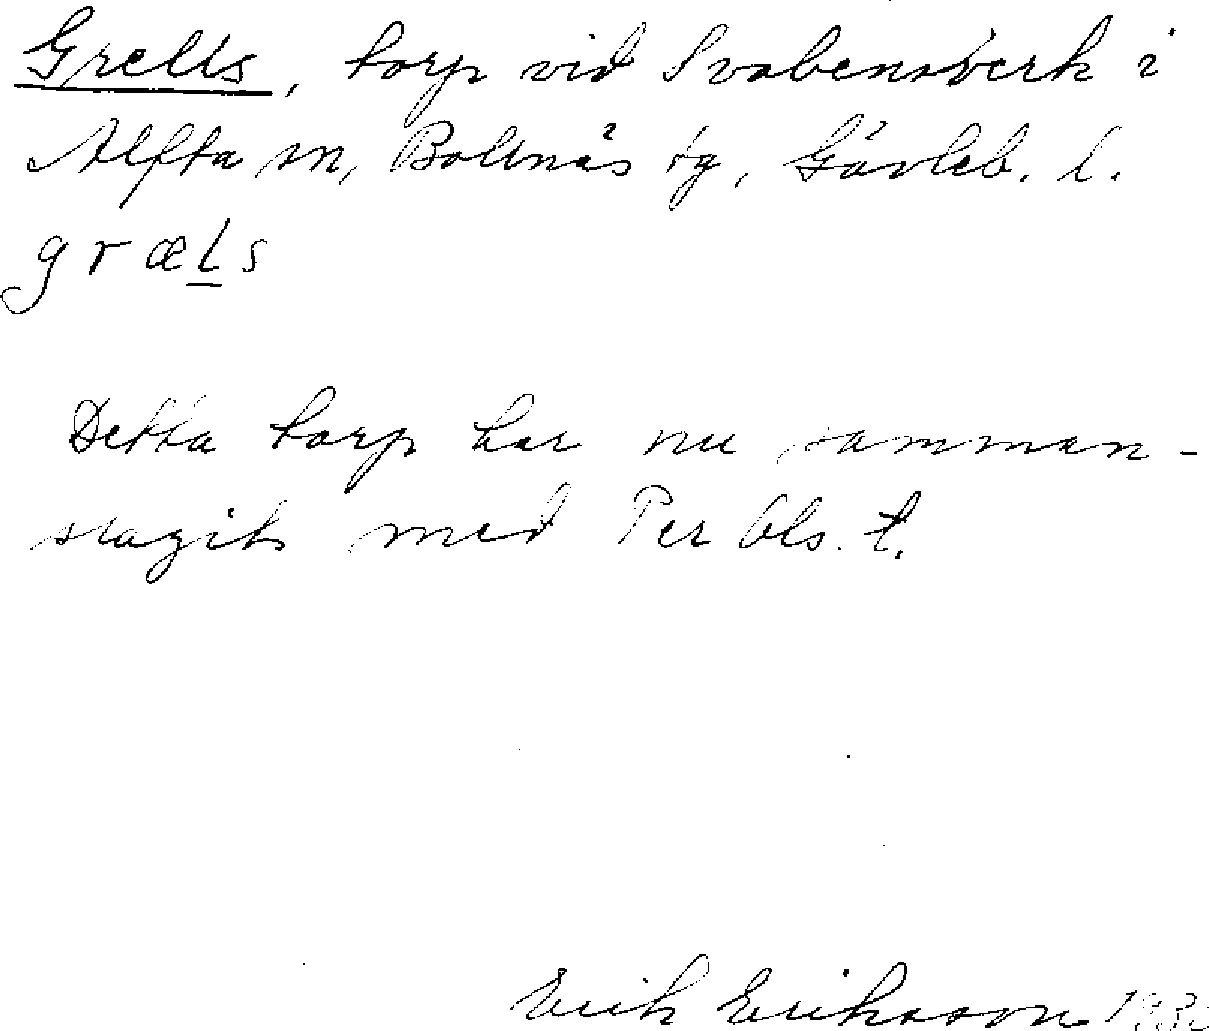 Grells, torp vid Svabensverk i
Alfta sn, Bollnäs tg, Gävleb. l.
græls
Detta torp har nu samman-
slagits med Per Ols. t.
Erik Eriksson